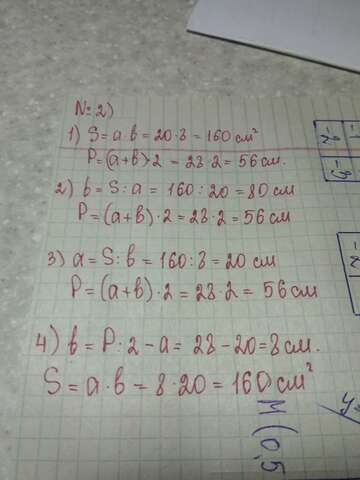 N=2)
1) S=a·b=20·8=160 см²
P=(a+b)·2=28·2=56 см.
2) b=S:a=160:20=80 см
P=(a+b)·2=28·2=56 см
3) a=S:b=160:8=20 см
P=(a+b)·2=28·2=56 см
4) b=P:2-a=28-20=8 см.
S=a·b=8·20=160 см²
M(0,5
y=
-2
-3